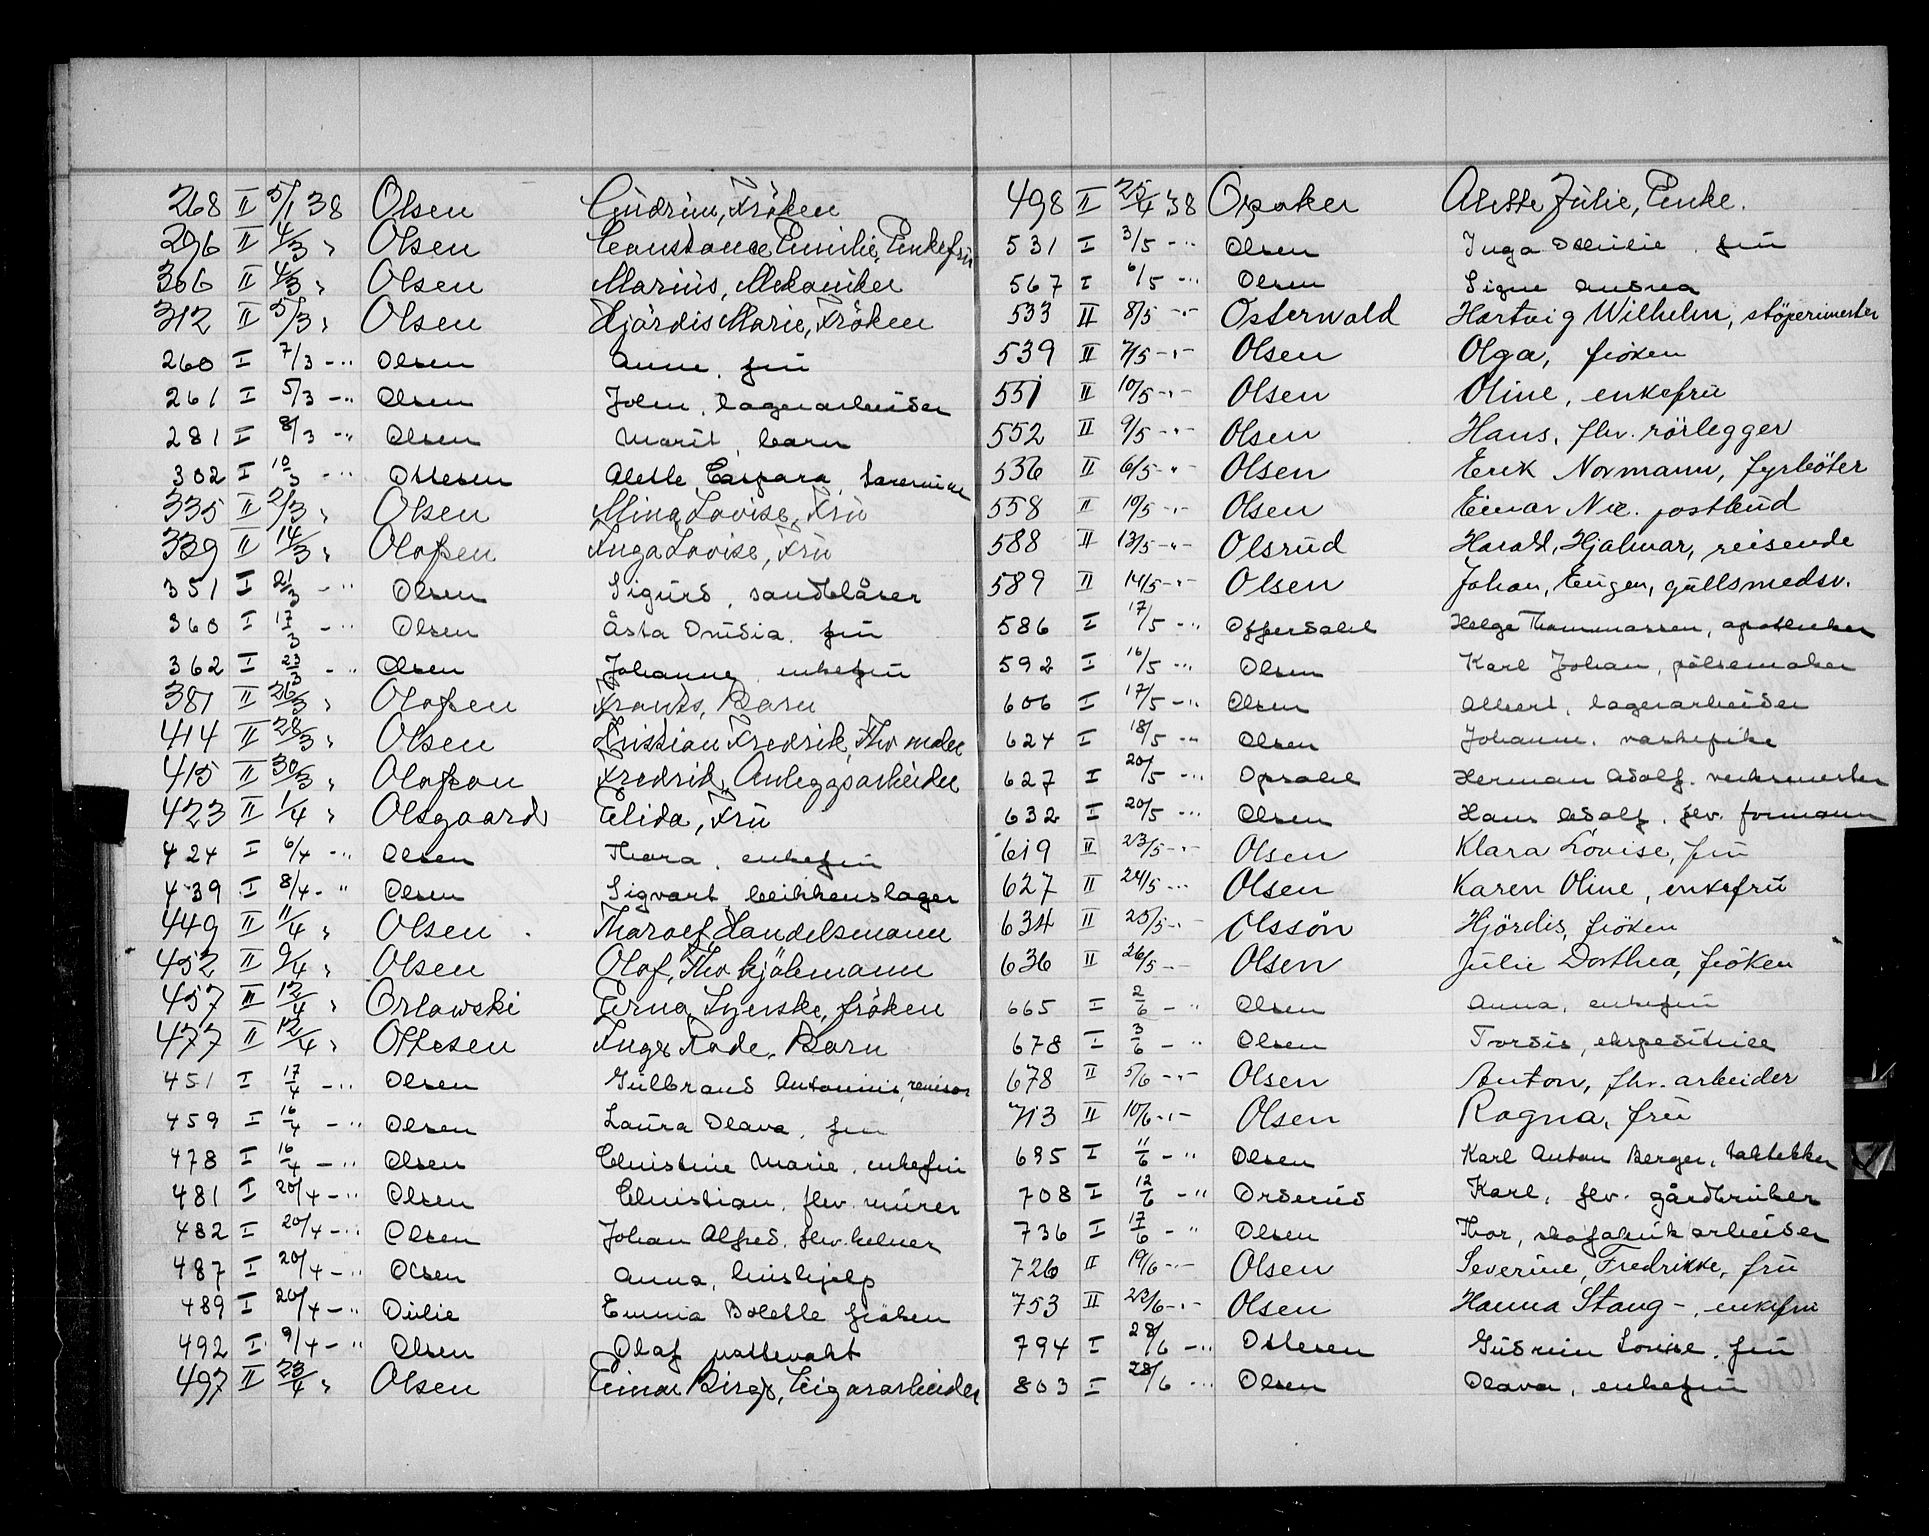 268 II 5/1 38 Olsen Gudrun, Fröken
296 II 4/3 " Olsen Constance Emilie, Enkefru
366 II 4/3 " Olsen Marius, Mekaniker
312 II 5/3 " Olsen Hjördis Marie, Fröken
260 I 7/3 -"- Olsen Anne, fru
261 I 5/3 -"- Olsen John, lagerarbeider
281 I 8/3 -"- Olsen Marit, barn
302 I 10/3 -"- Ottesen Alette Caspara,
335 II 2/3 " Olsen Mina Lovise, Fru
339 II 14/3 " Olofsen Inga Lovise, Fru
351 I 21/3 -"- Olsen Sigurd, sandblåser
360 I 17/3 -"- Olsen Åsta Drusia, fru
362 I 23/3 -"- Olsen Johanne, enkefru
381 II 26/3 " Olofsen Frants, Barn
414 II 28/3 " Olsen Kristian Fredrik, Fhv maler
415 II 30/3 " Olofson Fredrik, Anleggsarbeider
423 II 1/4 " Olsgaard Elida, Fru
424 I 6/4 -"- Olsen Thora, enkefru
439 I 8/4 -"- Olsen Sigvart, blikkenslager
449 II 11/4 " Olsen Tharaef, Handelsmann
452 II 9/4 " Olsen Olof, Fhv kjölmann
457 II 12/4 " Orlowski Erna Synske, fröken
477 II 12/4 " Ottesen Inger Rode, Barn
451 I 17/4 -"- Olsen Gulbrand Antonius, revisor
459 I 16/4 -"- Olsen Laura Olava, fru
478 I 16/4 -"- Olsen Christine Marie, enkefru
481 I 20/4 -"- Olsen Christian, flv. murer
482 I 20/4 -"- Olsen Johan Alfred, flv. kelner
487 I 20/4 -"- Olsen Anna, hushjelp
489 I 20/4 -"- Ouilie Emma Bolette fröken
492 I 9/4 -"- Olsen Olaf nattevakt
497 II 23/4 " Olsen Einar Birger, Sigararbeider
498 II 25/4 38 Opsaker Alette Julie, Enke.
531 I 3/5 -"- Olsen Inga Othilie, fru
567 I 6/5 -"- Olsen Signe Andrea
533 II 8/5 -"- Osterwald Hartvig Wilhelm, stöperimester
539 II 7/5 -"- Olsen Olga, fröken
551 II 10/5 -"- Olsen Oline, enkefru
552 II 9/5 -"- Olsen Hans, fhv. rörlegger
536 II 6/5 -"- Olsen Erik Normann, fyrböter
558 II 10/5 -"- Olsen Einar Nic. postbud
588 II 13/5 -"- Olsrud Harald, Hjalmar, reisende
589 II 14/5 -"- Olsen Johan, Eugen, gullsmedsv.
586 I 17/5 -"- Offerdahl Helge Thommassen, apotheker
592 I 16/5 -"- Olsen Karl Johan, pölsemaker
606 I 17/5 -"- Olsen Albert, lagerarbeider
624 I 18/5 -"- Olsen Johanne, vaskepike
627 I 20/5 -"- Opsahl Herman Adolf, verksmester
632 I 20/5 -"- Olsen Hans Adolf, flv. formann
619 II 23/5 -"- Olsen Klara Lovise, fru
627 II 24/5 -"- Olsen Karen Oline, enkefru
634 II 25/5 -"- Olssön Hjördis, fröken
636 II 26/5 -"- Olsen Julie Dorthea, fröken
665 I 2/6 -"- Olsen Anna, enkefru
678 I 3/6 -"- Olsen Tordis, ekspeditrice
678 II 5/6 -"- Olsen Anton, fhv. arbeider
713 II 10/6 -"- Olsen Ragna, fru
695 I 11/6 -"- Olsen Karl Anton Berger, taktekker
708 I 12/6 -"- Orderud Karl, flv. gårdbruker
736 I 17/6 -"- Olsen Thor, skofabrikarbeider
726 II 19/6 -"- Olsen Severine, Fredrikke, fru
753 II 23/6 -"- Olsen Hanna Stang -, enkefru
794 I 28/6 -"- Ottesen Gudrun Louise, fru
803 I 28/6 -"- Olsen Olava, enkefru